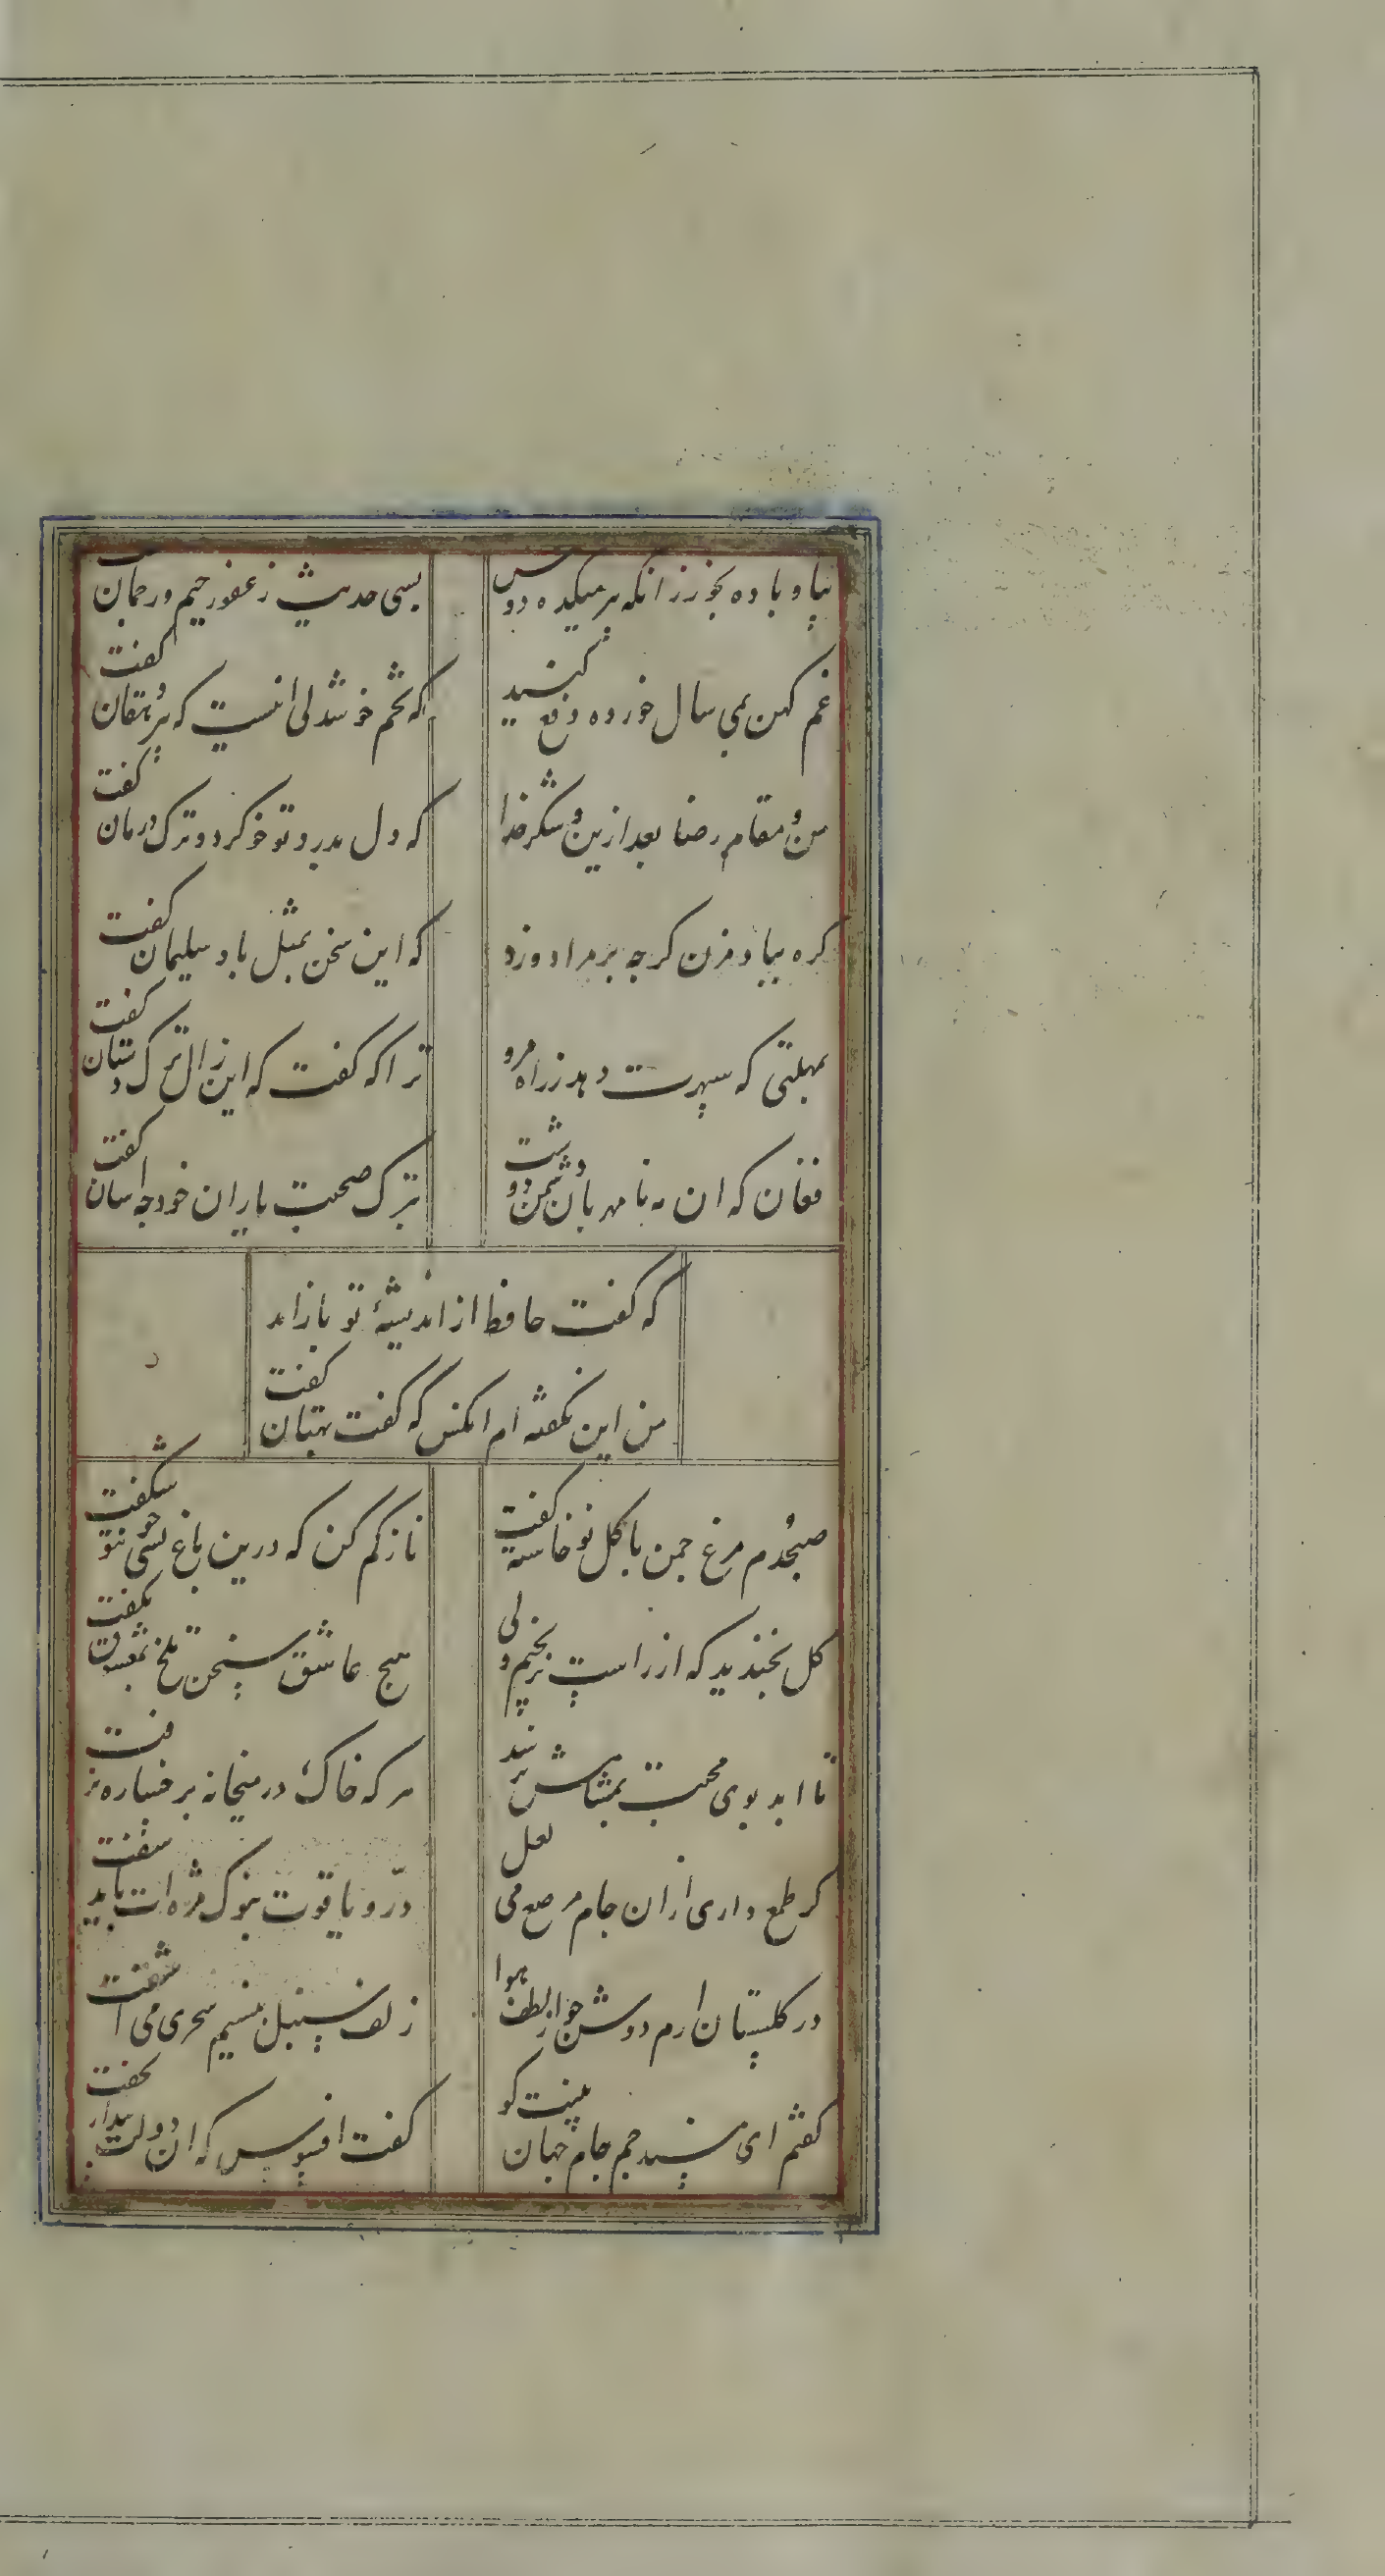 بیا و باده بخور زانکه پیر میکده دوس
بسی حدیث ز غفور رحیم و رحمان
گفت
غم کهن بمی سال خورده دفع کنید
که تخم خوشدلی اینست که پیر دهقان گفت
من و مقام رضا بعد ازین و شکر خدا
که دل بدرد تو خو کرد و ترک درمان گفت
کره بباد مزن کرچه بر مراد وزد
که این سخن بمثل باد سلیمان گفت
بمهلتی که سپهرت دهد ز راه مرو
ترا که گفت که این زال ترک دستان گفت
فغان که ان مه نامهربان دشمن دوست
بترک صحبت یاران خود چه اسان گفت
که گفت حافظ از اندیشهٔ تو باز امد
من این نگفته ام انکس که گفت بهتان گفت
صبحدم مرغ چمن با کل نو خاسته گفت
ناز کم کن که درین باغ بسی چو تو شکفت
کل بخندید که از راست نرنجیم ولی
هیچ عاشق سخن تلخ بمعشوق نگفت
تا ابد بوی محبت بمشامش نرسد
هر که خاک در میخانه برخساره نرفت
کر طمع داری ازان جام مرصع می لعل
درّ و یاقوت بنوک مژه ات باید سفت
در کلستان ارم دوش چو از لطف هوا
زلف سنبل بنسیم سحری می اشفت
گفتم ای مسند جم جام جهان بینت کو
گفت افسوس که ان دولت بیدار بخفت